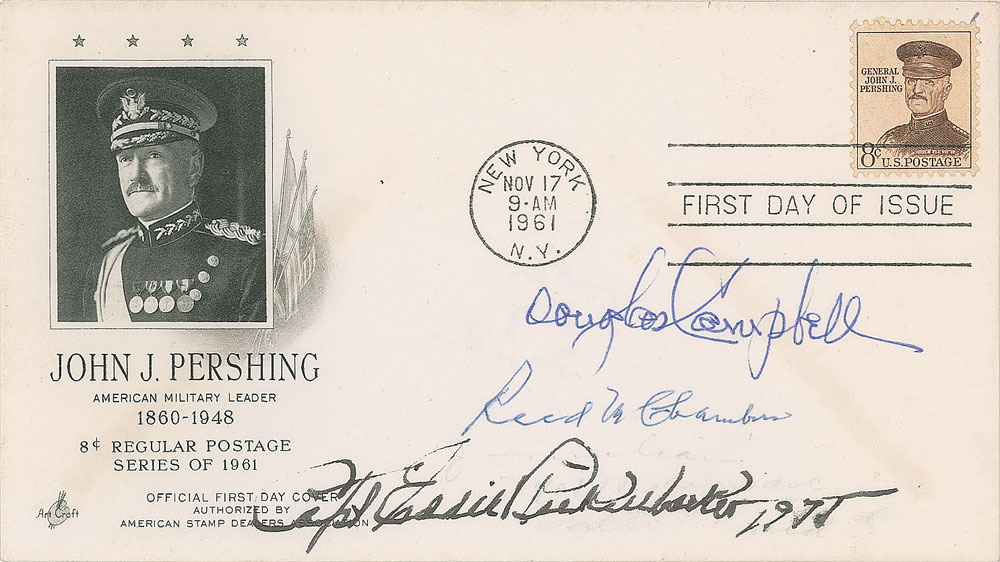 GENERAL
JOHN J.
PERSHING
8¢ U.S.POSTAGE
NEW YORK
NOV 17
9-AM
1961
N.Y.
FIRST DAY OF ISSUE
Douglas Campbell
Reed M Chambers
Capt Eddie Rickenbacker, 1971
JOHN J. PERSHING
AMERICAN MILITARY LEADER
1860-1948
8¢ REGULAR POSTAGE
SERIES OF 1961
OFFICIAL FIRST DAY COVER
AUTHORIZED BY
AMERICAN STAMP DEALERS ASSOCIATION
Art Craft